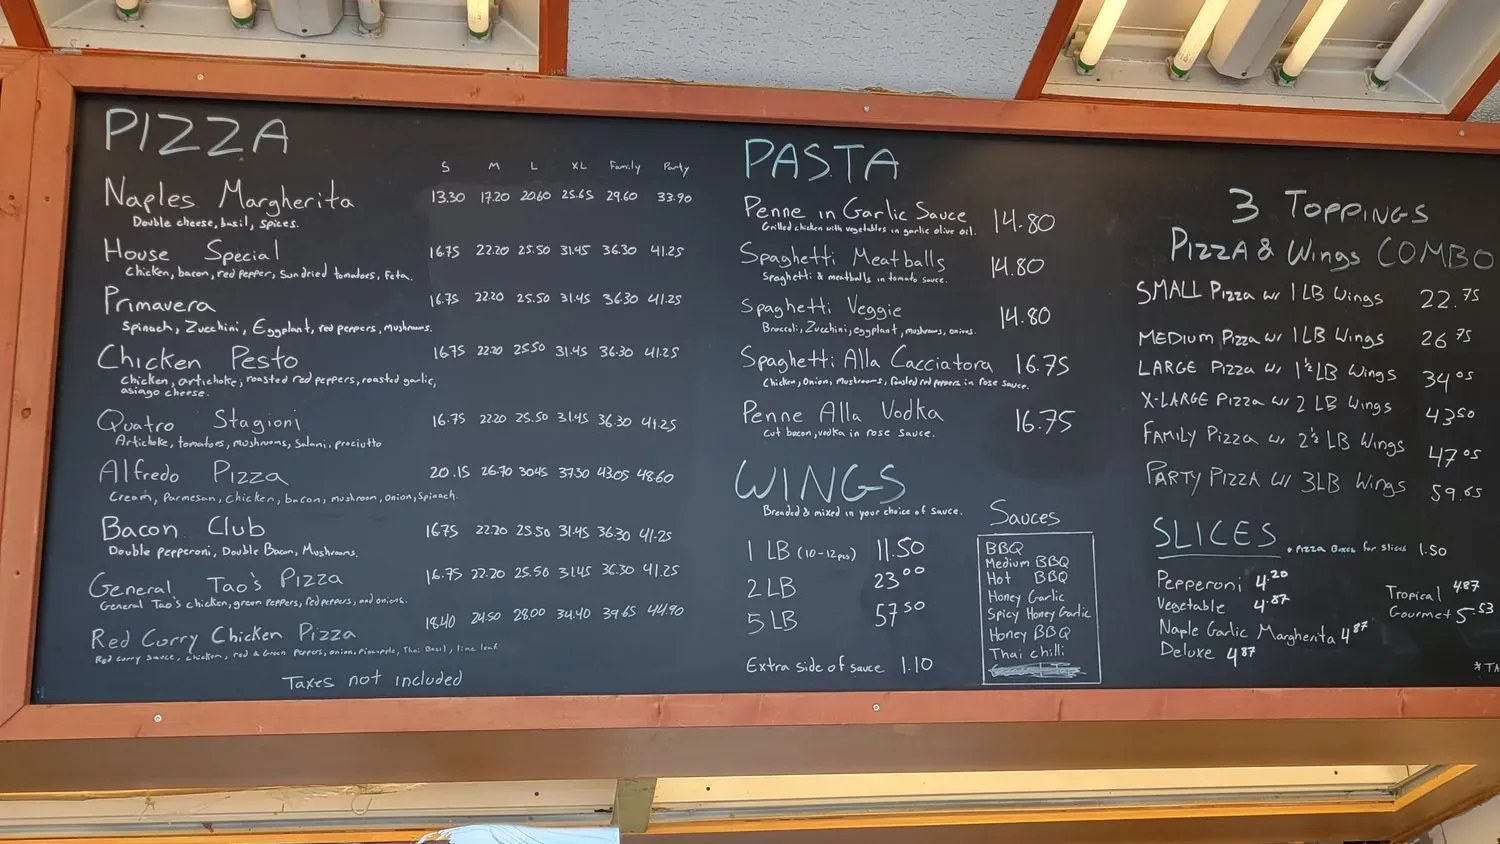 PIZZA
S M L XL Family Party
Naples Margherita 13.30 17.20 20.60 25.65 29.60 33.90
Double cheese, basil, spices.
House Special 16.75 22.20 25.50 31.45 36.30 41.25
Chicken, bacon, red pepper, Sundried tomatoes, Feta.
Primavera 16.75 22.20 25.50 31.45 36.30 41.25
Spinach, Zucchini, Eggplant, red peppers, Mushrooms.
Chicken Pesto 16.75 22.20 25.50 31.45 36.30 41.25
chicken, artichoke, roasted red peppers, roasted garlic,
asiago cheese.
Quatro Stagioni 16.75 22.20 25.50 31.45 36.30 41.25
Artichoke, tomatoes, mushrooms, Salami, prociutto
Alfredo Pizza 20.15 26.70 30.45 37.30 43.05 48.60
Cream, Parmesan, Chicken, bacon, mushroom, onion, Spinach.
Bacon Club 16.75 22.20 25.50 31.45 36.30 41.25
Double pepperoni, Double Bacon, Mushrooms.
General Tao's Pizza 16.75 22.20 25.50 31.45 36.30 41.25
General Tao's chicken, green peppers, Red peppers, and onions.
Red Curry Chicken Pizza 18.40 24.50 28.00 34.40 39.65 44.90
Red curry sauce, chicken, red & Green Peppers, onion, Pineapple, Thai Basil, lime leaf
Taxes not included
PASTA
Penne in Garlic Sauce 14.80
Grilled chicken with vegetables in garlic olive oil.
Spaghetti Meatballs 14.80
Spaghetti & meatballs in tomato sauce.
Spaghetti Veggie 14.80
Broccoli, Zucchini, eggplant, mushrooms, onions.
Spaghetti Alla Cacciatora 16.75
Chicken, Onion, Mushrooms, Roasted red peppers in rose sauce.
Penne Alla Vodka 16.75
cut bacon, vodka in rose sauce.
WINGS
Breaded & mixed in your choice of sauce.
1 LB (10-12pcs) 11.50
2 LB 23.00
5 LB 57.50
Extra side of sauce 1.10
Sauces
BBQ
Medium BBQ
Hot BBQ
Honey Garlic
Spicy Honey Garlic
Honey BBQ
Thai chilli
3 TOPPINGS
PIZZA & Wings COMBO
SMALL Pizza w/ 1 LB Wings 22.75
MEDIUM Pizza w/ 1 LB Wings 26.75
LARGE Pizza w/ 1 1/2 LB Wings 34.05
X-LARGE Pizza w/ 2 LB Wings 43.50
FAMILY Pizza w/ 2 1/2 LB Wings 47.05
PARTY PIZZA w/ 3LB Wings 59.65
SLICES • Pizza Boxes for Slices 1.50
Pepperoni 4.20
Vegetable 4.87
Naple Garlic Margherita 4.87
Deluxe 4.87
Tropical 4.87
Gourmet 5.53
*TA